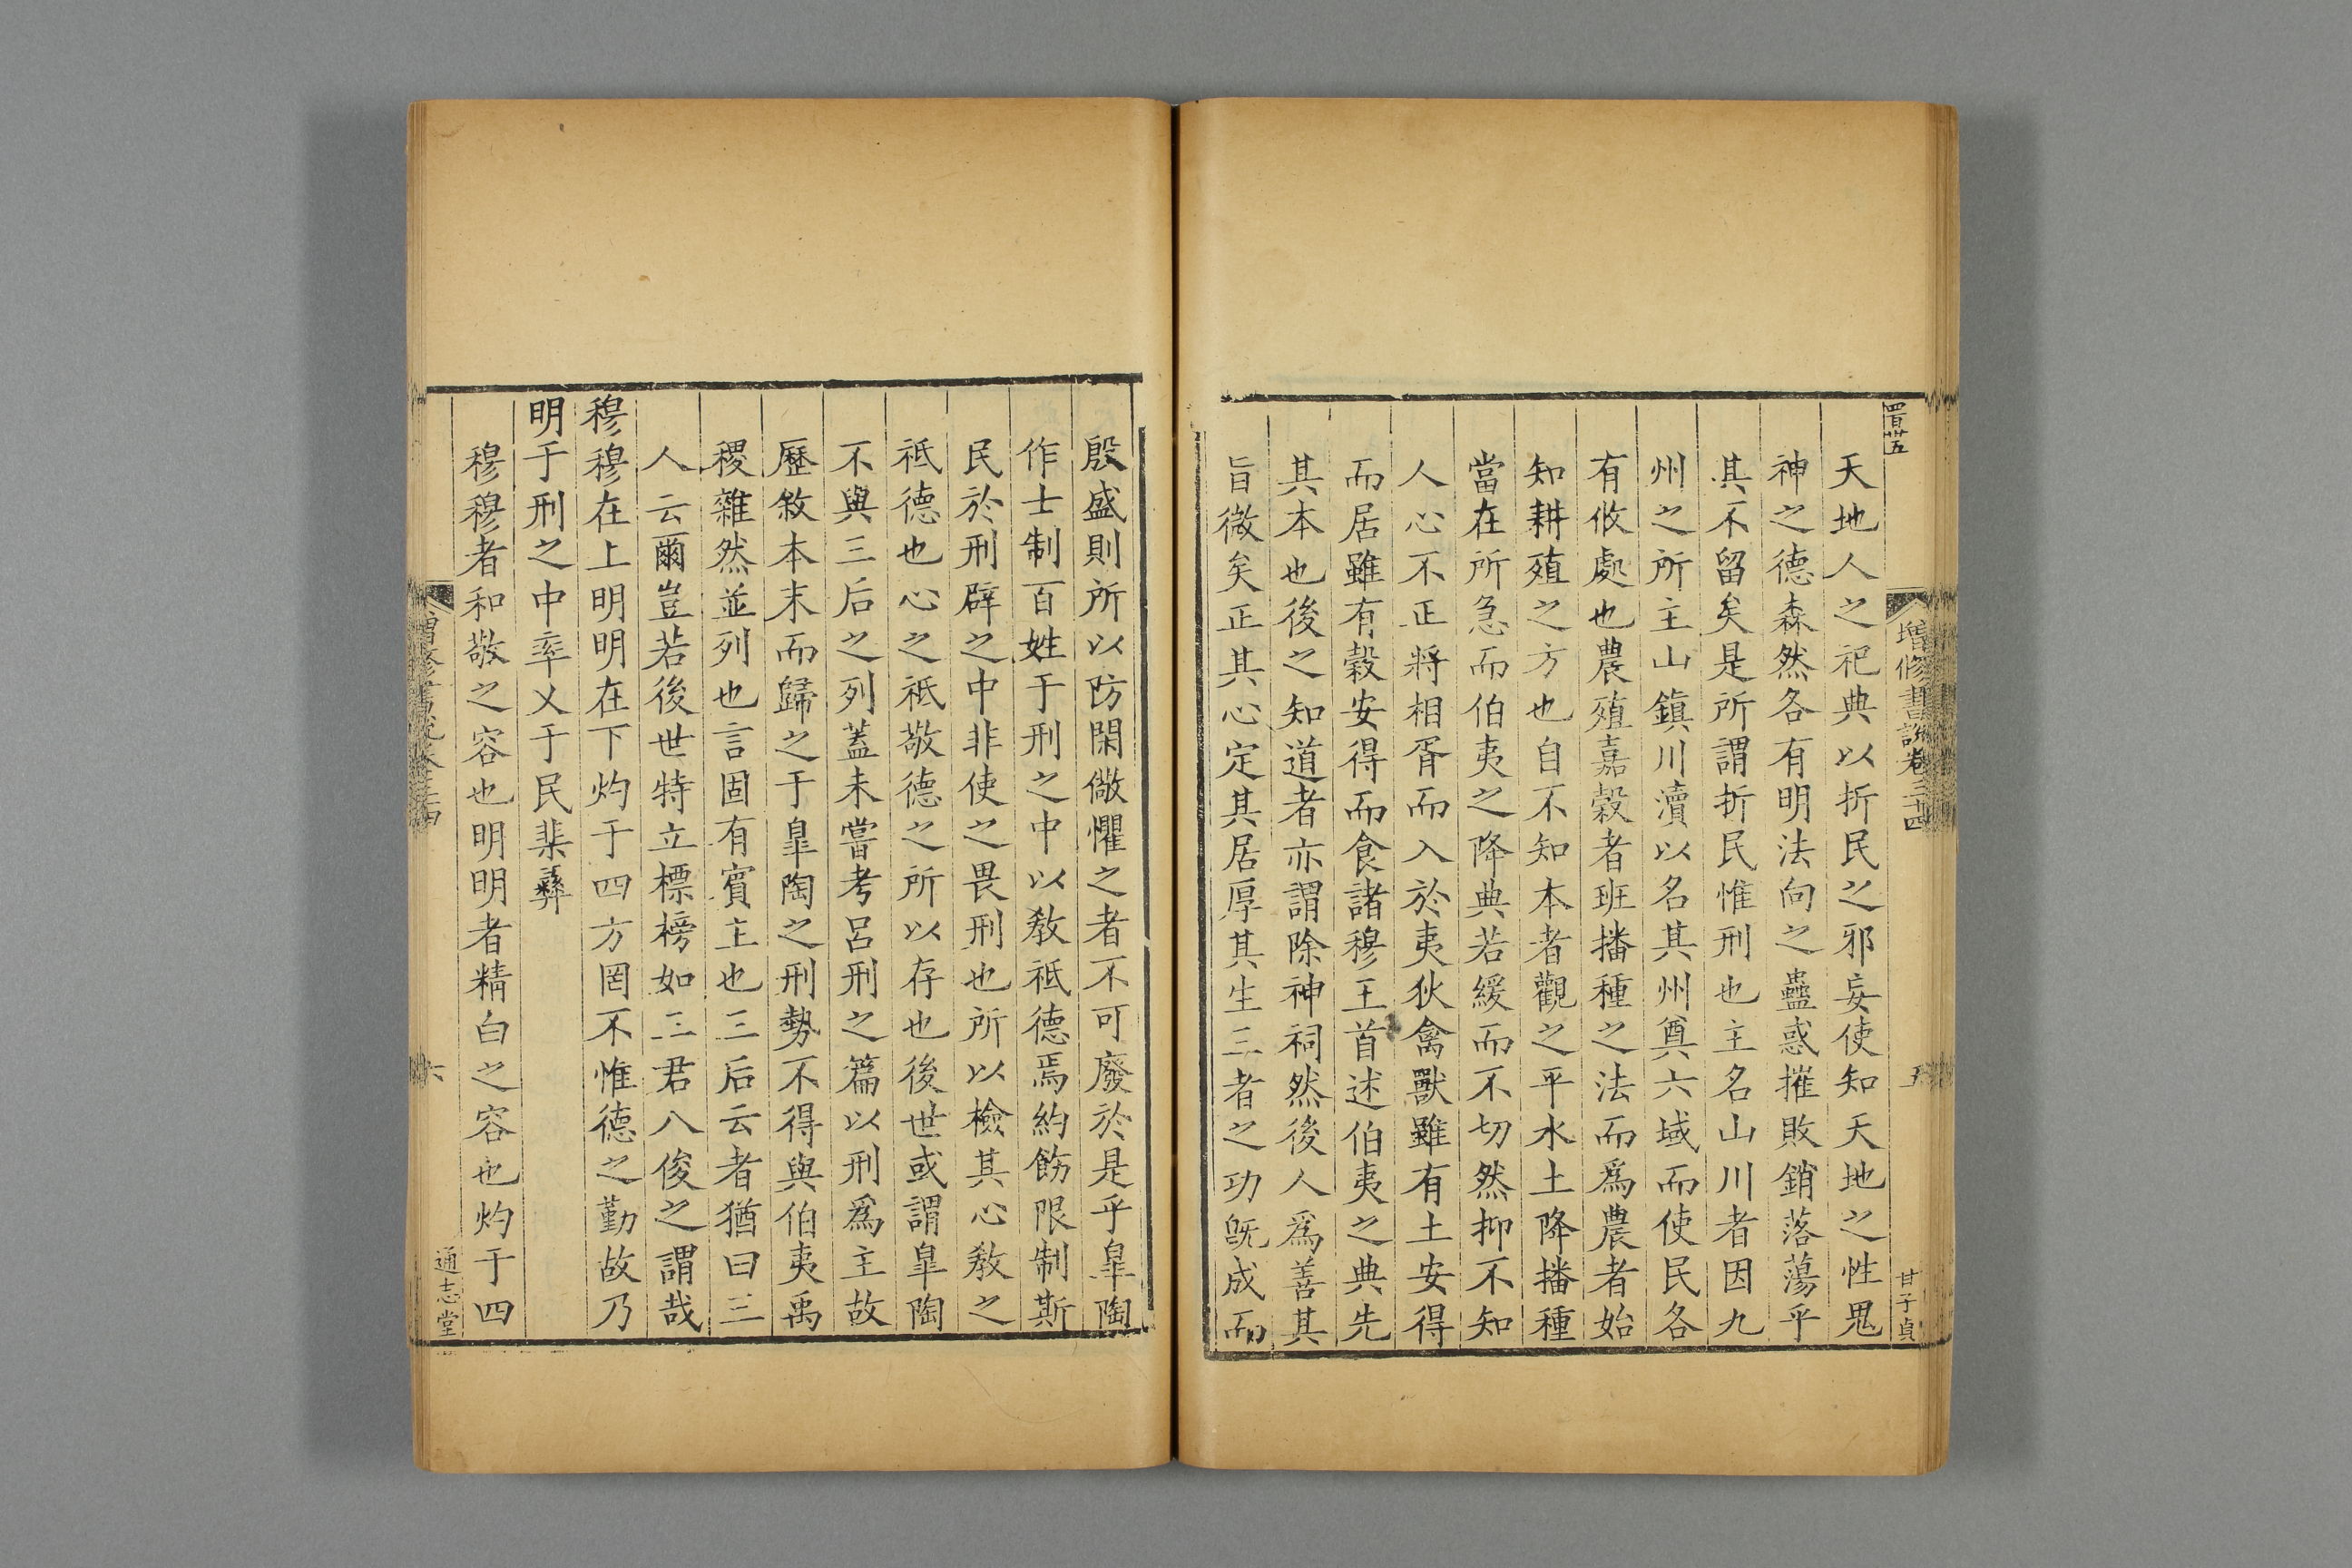 四百廿五
增修書說卷三十四
五
甘子貞
天地人之祀典以折民之邪妄使知天地之性鬼
神之德森然各有明法向之蠱惑摧敗銷落蕩乎
其不留矣是所謂折民惟刑也主名山川者因九
州之所主山鎮川瀆以名其州奠六域而使民各
有攸處也農殖嘉穀者班播種之法而爲農者始
知耕殖之方也自不知本者觀之平水土降播種
當在所急而伯夷之降典若緩而不切然抑不知
人心不正將相胥而入於夷狄禽獸雖有土安得
而居雖有穀安得而食諸穆王首述伯夷之典先
其本也後之知道者亦謂除神祠然後人爲善其
旨微矣正其心定其居厚其生三者之功旣成而
殷盛則所以防閑儆懼之者不可廢於是乎皐陶
作士制百姓于刑之中以敎祗德焉約飭限制斯
民於刑辟之中非使之畏刑也所以檢其心敎之
祗德也心之祗敬德之所以存也後世或謂皐陶
不與三后之列蓋未嘗考呂刑之篇以刑爲主故
歷敘本末而歸之于皐陶之刑勢不得與伯夷禹
稷雜然並列也言固有賓主也三后云者猶曰三
人云爾豈若後世特立標榜如三君八俊之謂哉
穆穆在上明明在下灼于四方罔不惟德之勤故乃
明于刑之中率乂于民棐彝
穆穆者和敬之容也明明者精白之容也灼于四
增修書說卷三十四
六
通志堂